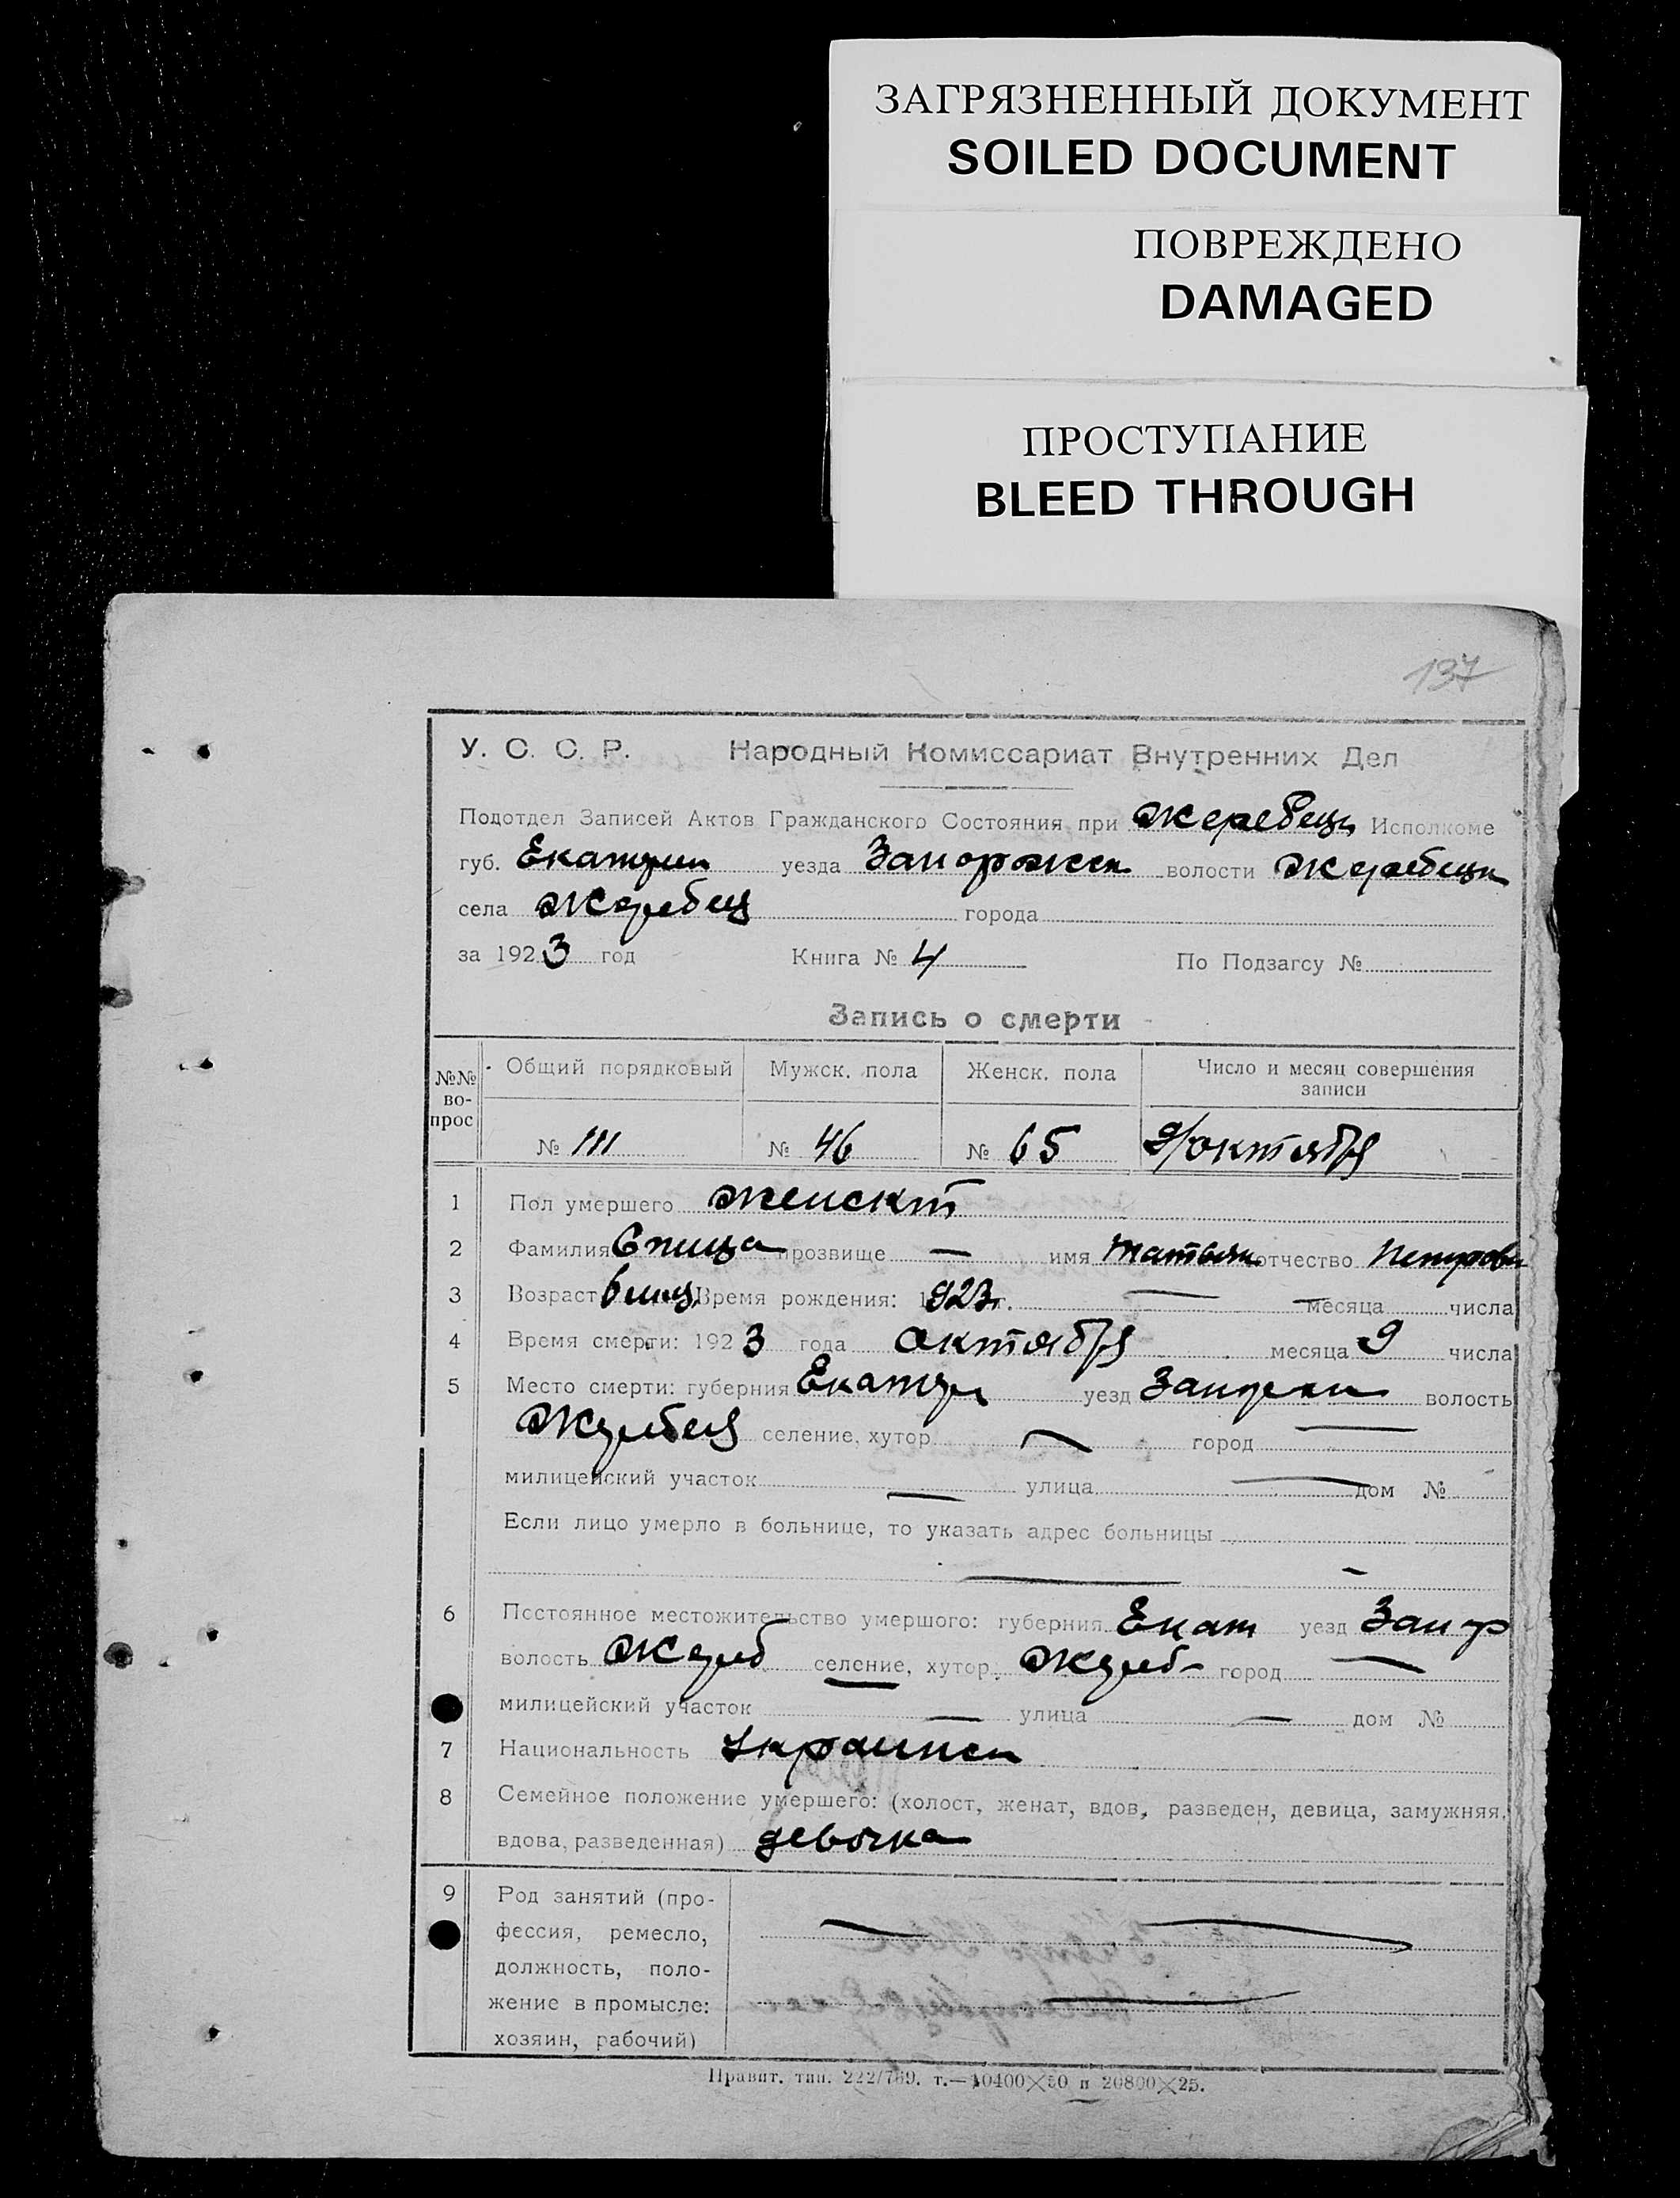 ЗАГРЯЗНЕННЫЙ ДОКУМЕНТ
SOILED DOCUMENT
ПОВРЕЖДЕНО
DAMAGED
ПРОСТУПАНИЕ
BLEED THROUGH
137
У. С. С. Р. Народный Комиссариат Внутренних Дел
Подотдел Записей Актов Гражданского Состояния при Жеребецк Исполкоме
губ. Екатерин уезда Запорожск волости Жеребецк
села Жеребец города
за 1923 год Книга № 4 По Подзагсу №
Запись о смерти
№№ во-прос Общий порядковый Мужск. пола Женск. пола Число и месяц совершения записи
№ 111 № 46 № 65 9/октября
1 Пол умершего женскт
2 Фамилия Спица прозвище — имя Татьян отчество Петровн
3 Возраст 6 мец Время рождения: 1923 г. — — месяца числа
4 Время смерти: 1923 года октября месяца 9 числа
5 Место смерти: губерния Екатер уезд Запорж волость
Жеребец селение, хутор — город —
милицейский участок — улица — дом №
Если лицо умерло в больнице, то указать адрес больницы
— -
6 Постоянное местожительство умершого: губерния Екат уезд Запор
волость Жереб селение, хутор Жереб- город —
милицейский участок — улица — дом №
7 Национальность Украинск
8 Семейное положение умершего: (холост, женат, вдов, разведен, девица, замужняя,
вдова, разведенная) девочка
9 Род занятий (про-
фессия, ремесло, — —
должность, поло-
жение в промысле: —
хозяин, рабочий)
Правит. тип. 222/769. т.—10400×50 и 20800×25.